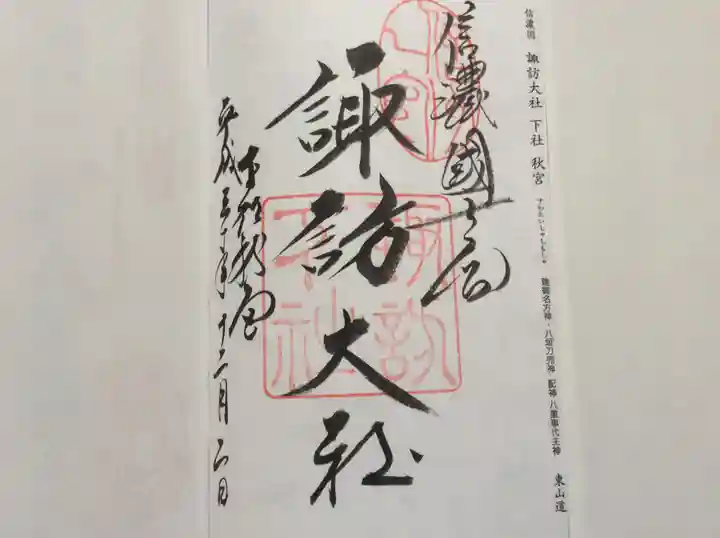 信濃國 諏訪大社 下社 秋宮 すわたいしゃしもしゃ 建御名方神・八坂刀売神 配神 八重事代主神 東山道
信濃國一之宮
諏訪大社
下社秋宮
平成三十年十二月六日
諏訪下社